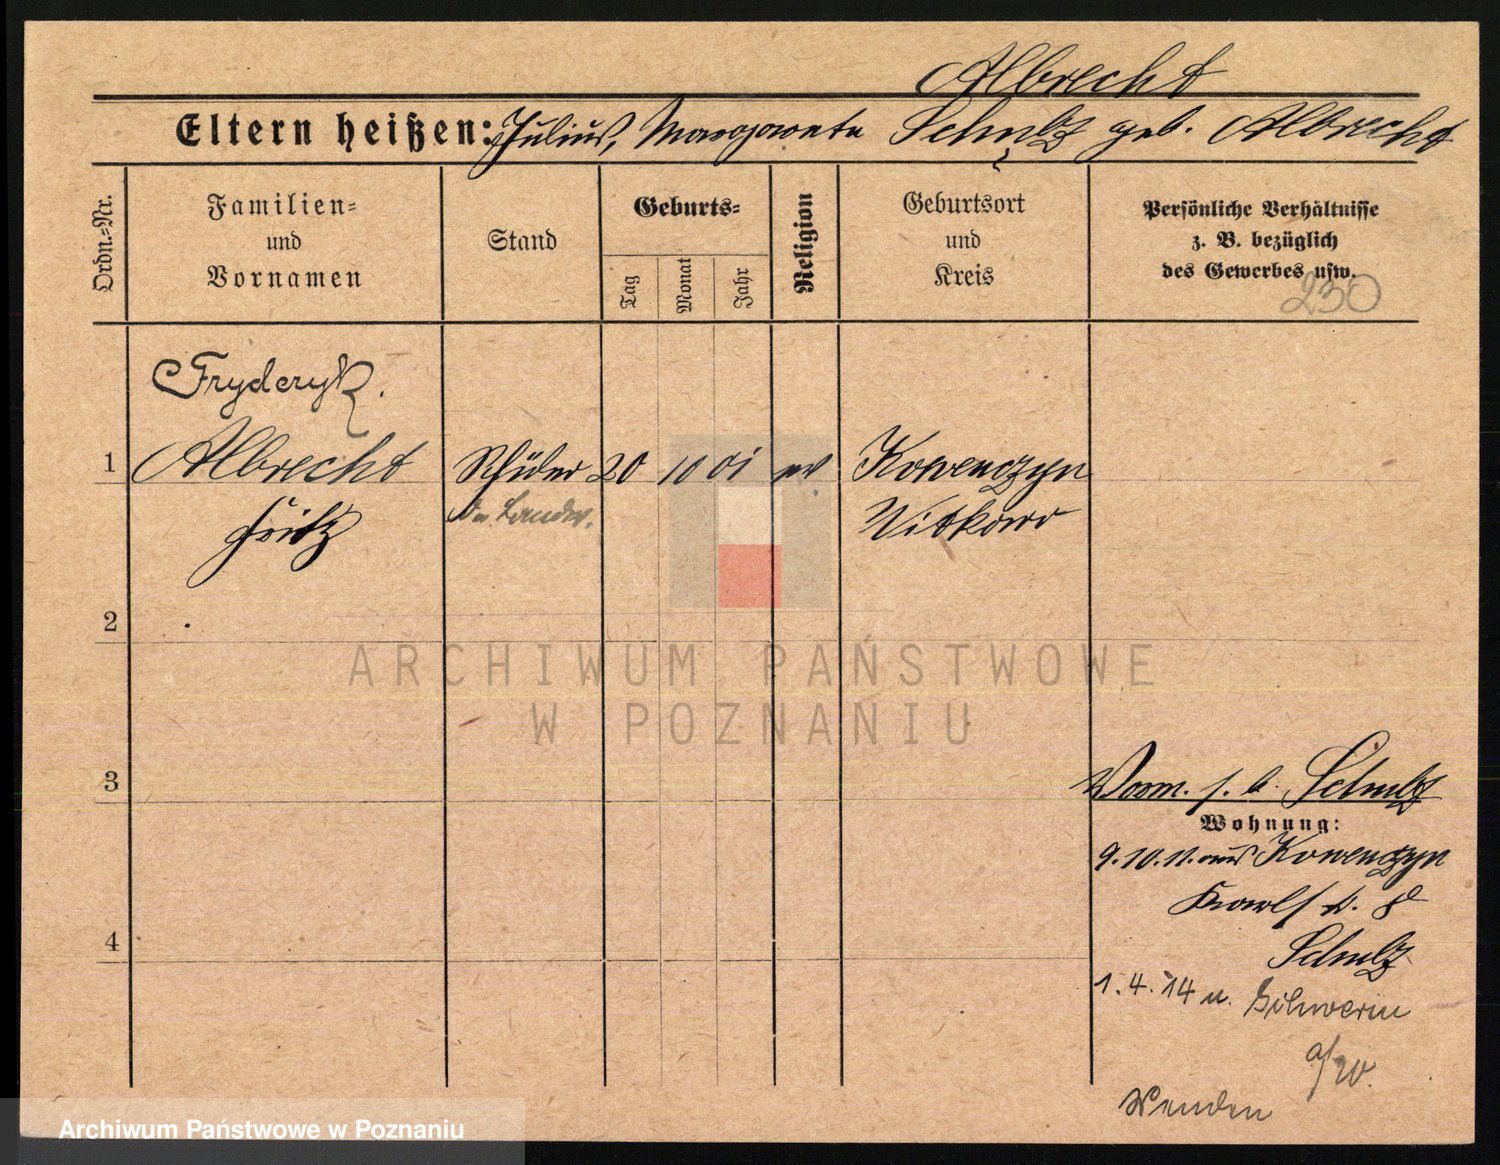 Albrecht
Eltern heißen: Julius, Margareta Schulz geb. Albrecht
Ordn.-Nr.
Familien-
und
Vornamen
Stand
Geburts-
Tag
Monat
Jahr
Religion
Geburtsort
und
Kreis
Persönliche Verhältnisse
z. B. bezüglich
des Gewerbes usw.
230
Fryderyk.
1 Albrecht Schüler 20 10 01 ev Kowenczyn
Fritz Witkowo
2
ARCHIWUM PAŃSTWOWE
W POZNANIU
3
Vorm. s. b. Schulz
Wohnung:
9.10.11. aus Kowenczyn
4
Schulz
1.4.14 n. Schwerin
a/W.
Wenden
Archiwum Państwowe w Poznaniu